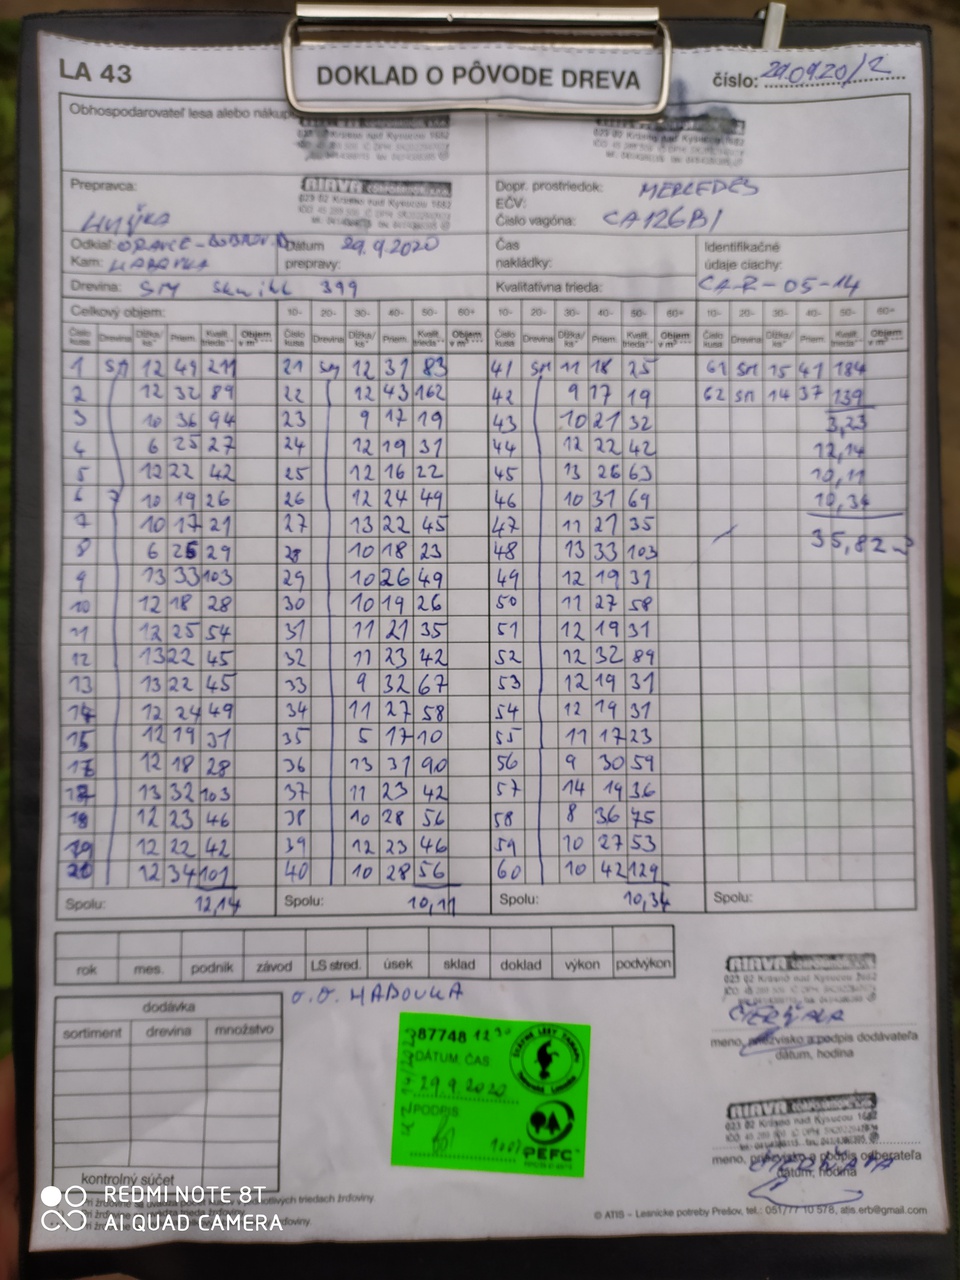 LA 43
DOKLAD O PÔVODE DREVA
číslo: 29.09.20/2
Obhospodarovateľ lesa alebo nákup
023 02 Krásno nad Kysucou 1682
023 02 Krásno nad Kysucou 1682
Prepravca:
AIAVA CORPORATION, s.r.o.
023 02 Krásno nad Kysucou 1682
Dopr. prostriedok: MERCEDES
EČV:
Číslo vagóna: CA126BI
Odkiaľ: ORAVCE-
Kam: HABOVKA
Dátum
prepravy: 29.9.2020
Čas
nakládky:
Identifikačné
údaje ciachy:
CAR-05-14
Drevina: SM 399
Kvalitatívna trieda:
Celkový objem: 10- 20- 30- 40- 50- 60+ 10- 20- 30- 40- 50- 60+ 10- 20- 30- 40- 50- 60+
Číslo kusa Drevina Dĺžka/ks* Priem. Kvalit. trieda** Objem v m³ Číslo kusa Drevina Dĺžka/ks* Priem. Kvalit. trieda** Objem v m³ Číslo kusa Drevina Dĺžka/ks* Priem. Kvalit. trieda** Objem v m³ Číslo kusa Drevina Dĺžka/ks* Priem. Kvalit. trieda** Objem v m³
1 SM 12 49 211 21 SM 12 31 83 41 SM 11 18 25 61 SM 15 41 184
2 12 32 89 22 12 43 162 42 9 17 19 62 SM 14 37 139
3 10 36 94 23 9 17 19 43 10 21 32 3,23
4 6 25 27 24 12 19 31 44 12 22 42 12,14
5 12 22 42 25 12 16 22 45 13 26 63 10,11
6 10 19 26 26 12 24 49 46 10 31 69 10,34
7 10 17 21 27 13 22 45 47 11 21 35
8 6 26 29 28 10 18 23 48 13 33 103 35,82
9 13 33 103 29 10 26 49 49 12 19 31
10 12 18 28 30 10 19 26 50 11 27 58
11 12 25 54 31 11 21 35 51 12 19 31
12 13 22 45 32 11 23 42 52 12 32 89
13 13 22 45 33 9 32 67 53 12 19 31
14 12 24 49 34 11 27 58 54 12 19 31
15 12 19 31 35 5 17 10 55 11 17 23
12 18 28 36 13 31 90 56 9 30 59
13 32 103 37 11 23 42 57 14 19 36
18 12 23 46 38 10 28 56 58 8 36 75
19 12 22 42 39 12 23 46 59 10 27 53
20 12 34 101 40 10 28 56 60 10 42 129
Spolu: 12,14 Spolu: 10,11 Spolu: 10,34 Spolu:
rok mes. podnik závod LS stred. úsek sklad doklad výkon podvýkon
O.O. HABOVKA
dodávka
sortiment drevina množstvo
kontrolný súčet
387748 12 30
DÁTUM ČAS
29.9.2020
PODPIS
PEFC
AIAVA CORPORATION, s.r.o.
023 02 Krásno nad Kysucou 1682
meno, priezvisko a podpis dodávateľa
dátum, hodina
AIAVA CORPORATION, s.r.o.
023 02 Krásno nad Kysucou 1682
meno, priezvisko a podpis odberateľa
dátum, hodina
© ATIS – Lesnícke potreby Prešov, tel.: 051/77 10 578, atis.erb@gmail.com
REDMI NOTE 8T
AI QUAD CAMERA